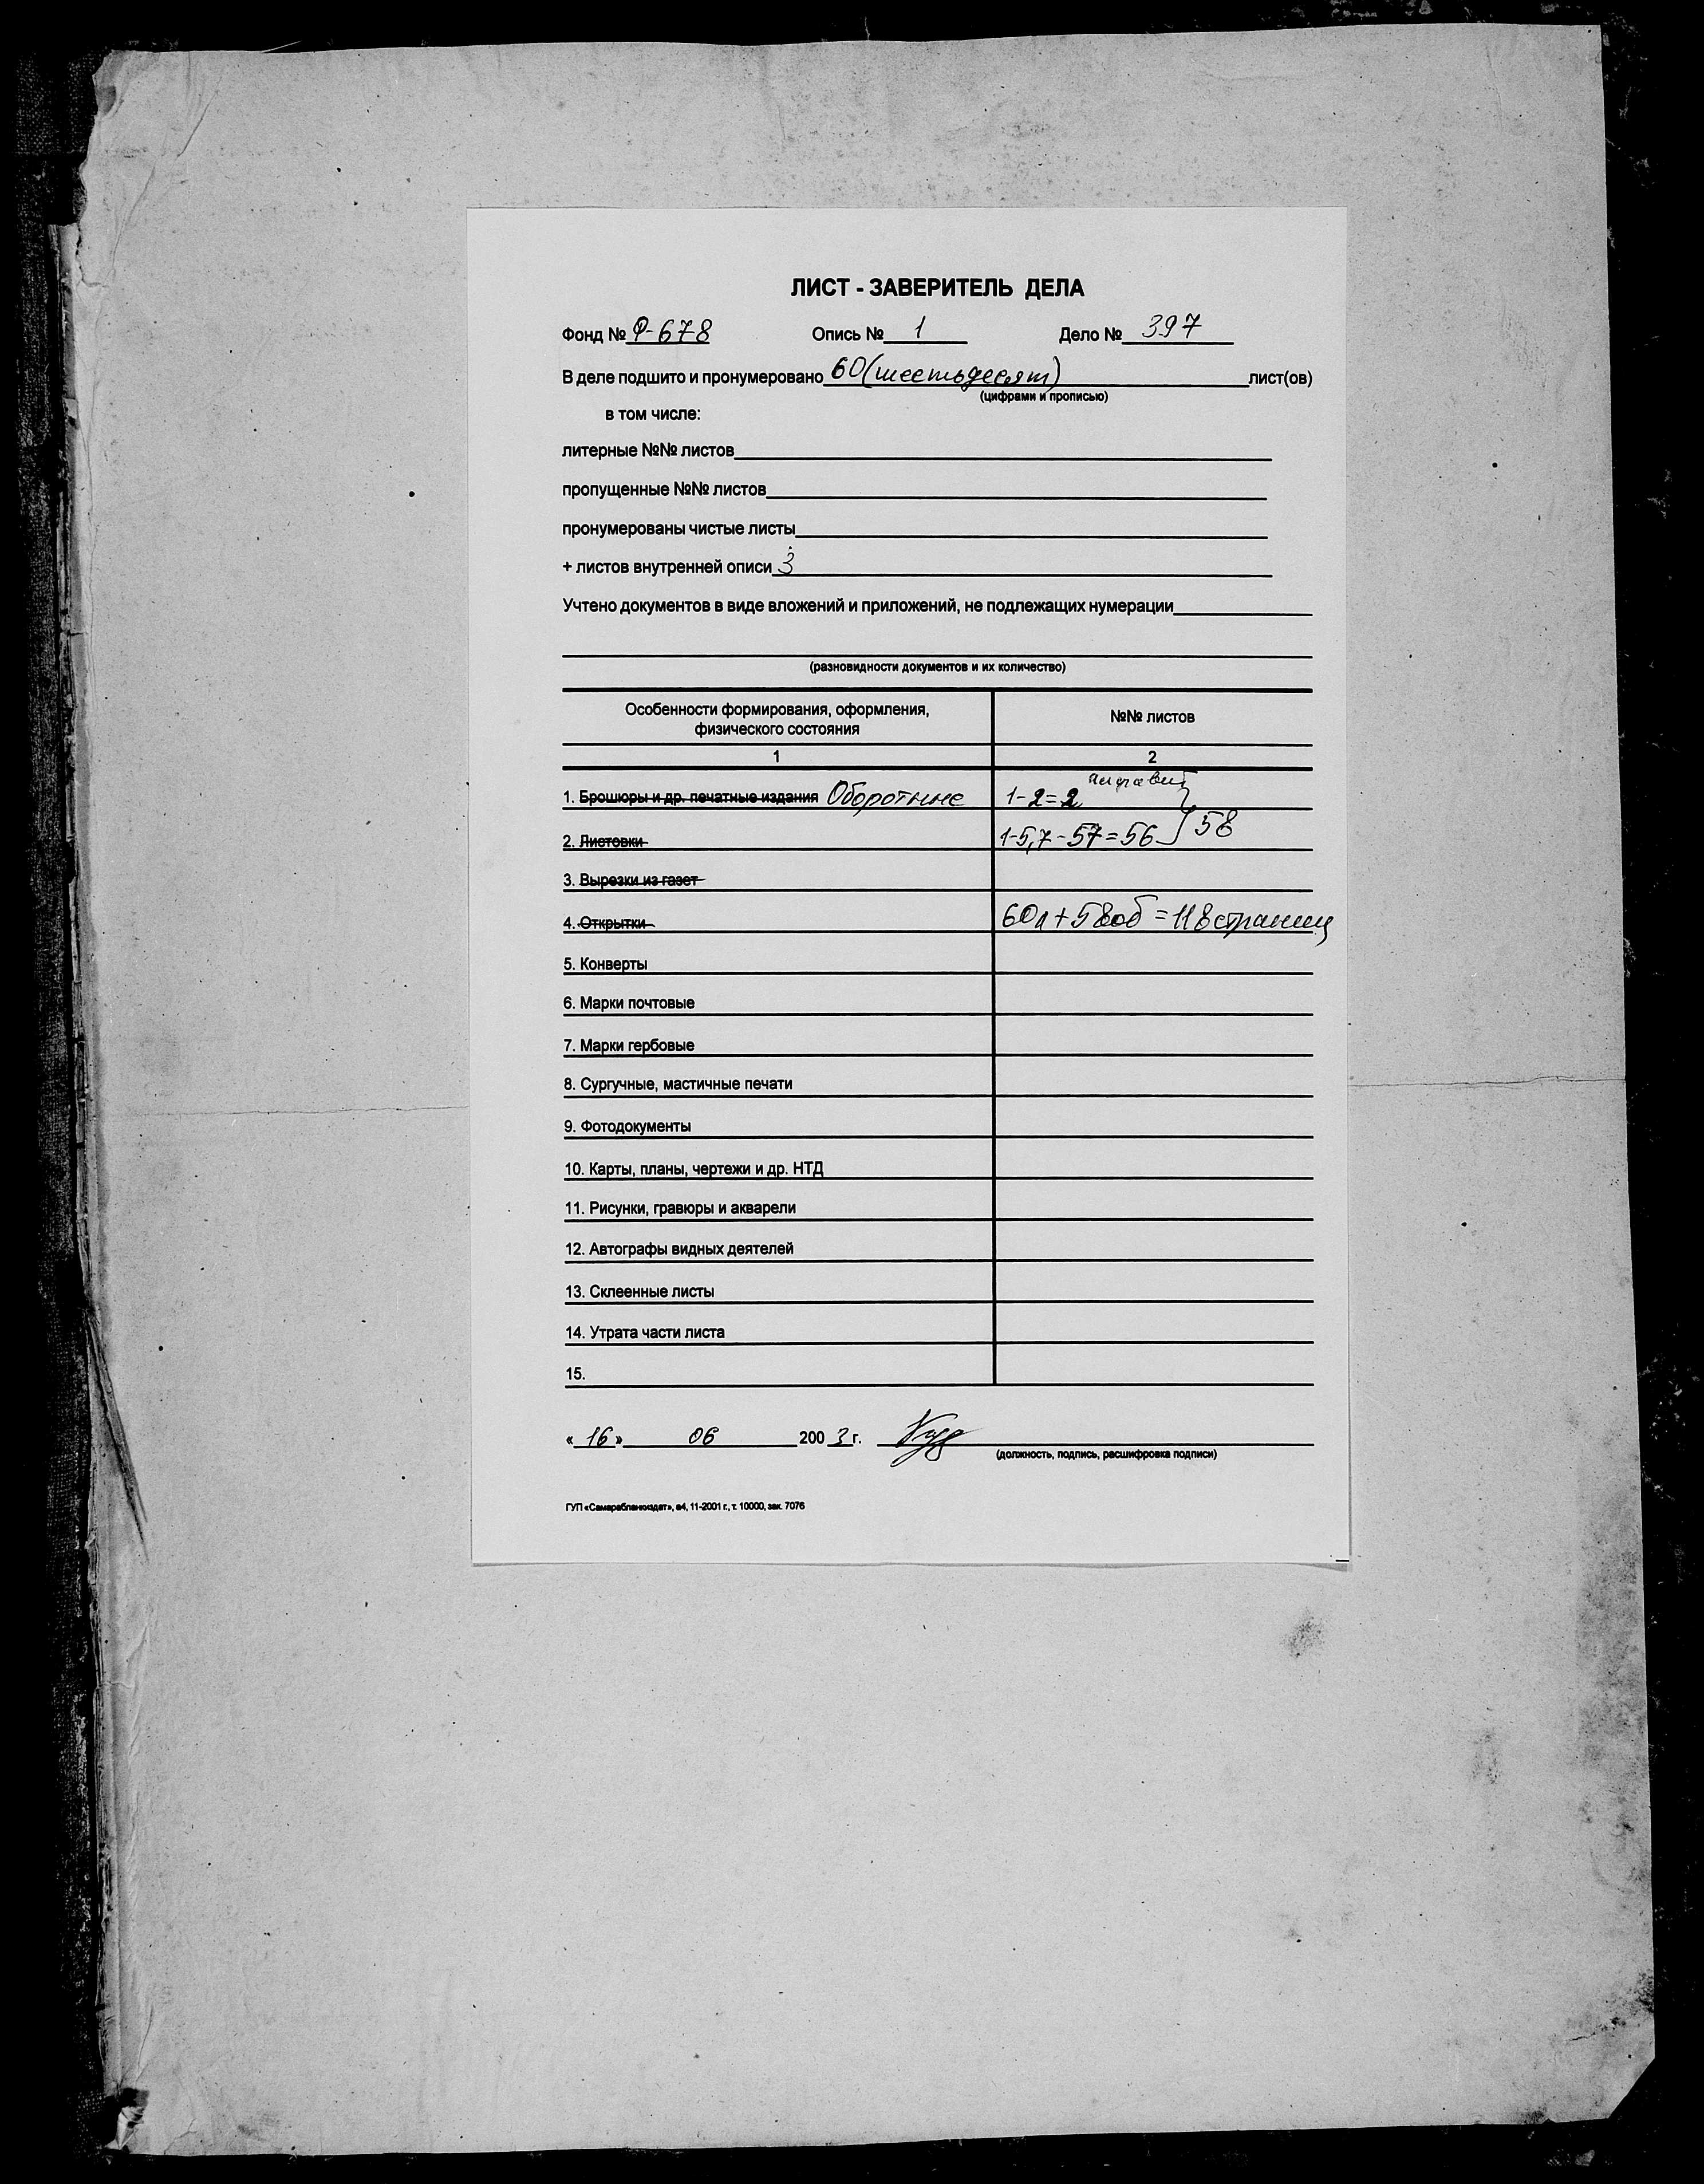 ЛИСТ - ЗАВЕРИТЕЛЬ ДЕЛА
Фонд № Р-678 Опись № 1 Дело № 397
В деле подшито и пронумеровано 60 (шестьдесят) лист(ов)
(цифрами и прописью)
в том числе:
литерные №№ листов
пропущенные №№ листов
пронумерованы чистые листы
+ листов внутренней описи 3
Учтено документов в виде вложений и приложений, не подлежащих нумерации
(разновидности документов и их количество)
Особенности формирования, оформления, физического состояния №№ листов
1 2
1. Брошюры и др. печатные издания Оборотные 1-2=2
2. Листовки 1-5,7-57=56 } 58
3. Вырезки из газет
4. Открытки 60л+58об=118страниц
5. Конверты
6. Марки почтовые
7. Марки гербовые
8. Сургучные, мастичные печати
9. Фотодокументы
10. Карты, планы, чертежи и др. НТД
11. Рисунки, гравюры и акварели
12. Автографы видных деятелей
13. Склеенные листы
14. Утрата части листа
15.
« 16 » 06 2003 г.
(должность, подпись, расшифровка подписи)
ГУП «Самарабланкиздат», а4, 11-2001 г., т. 10000, зак. 7076